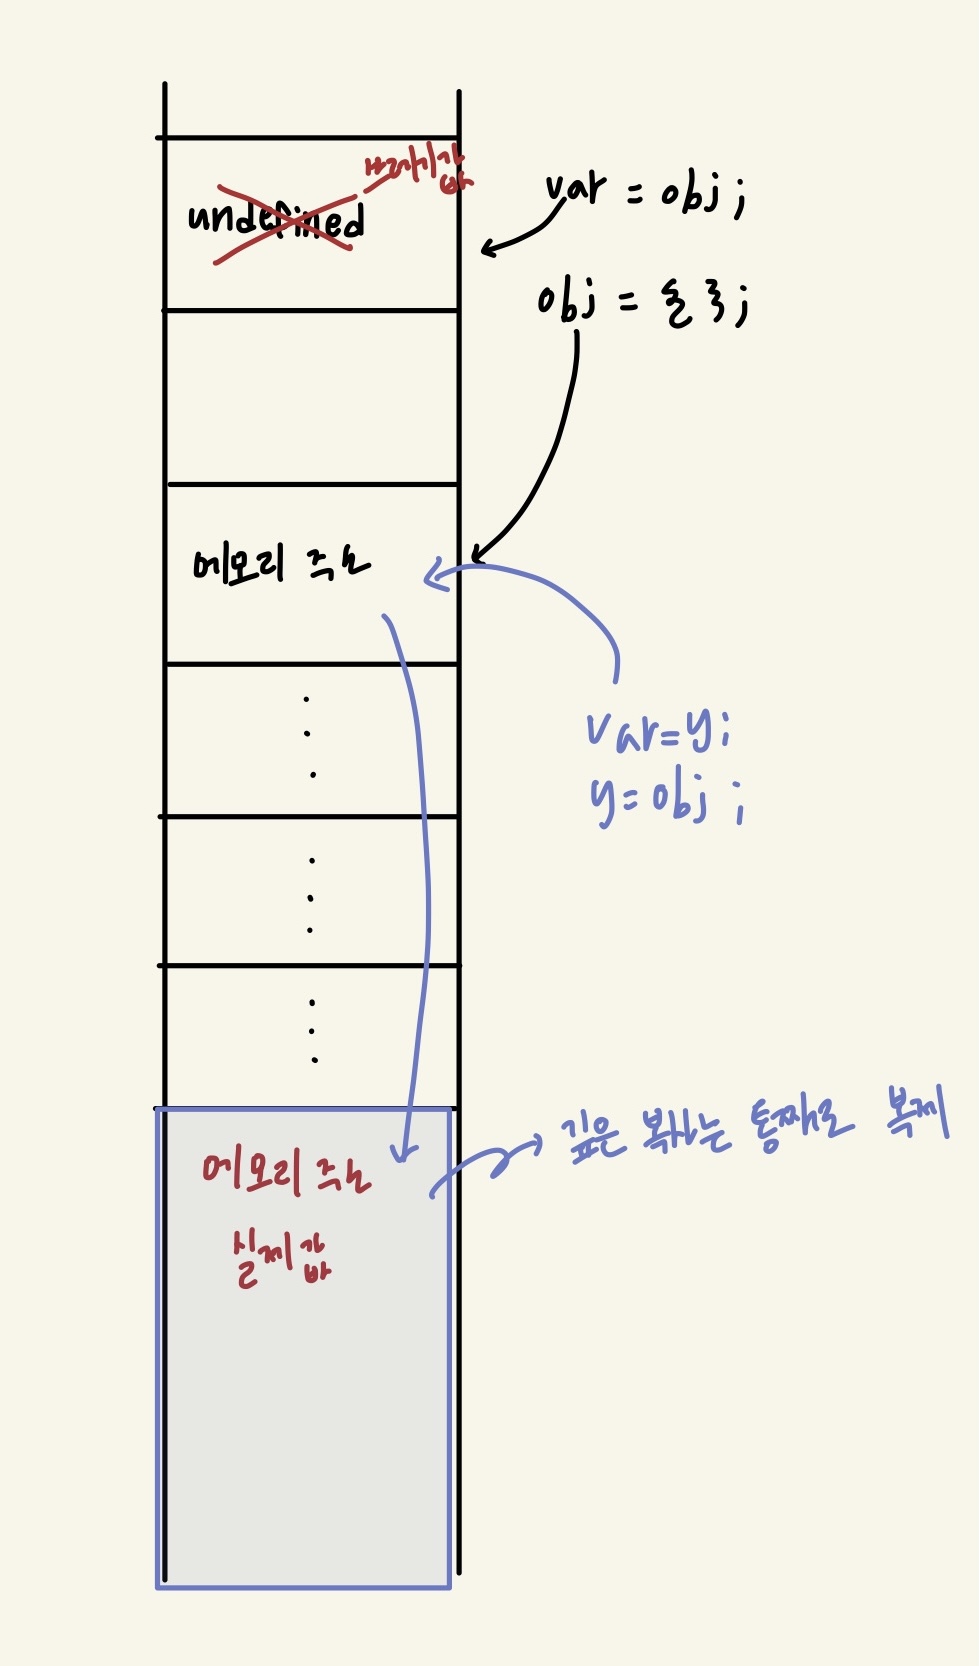 쓰레기값
undefined
var = obj ;
obj = { } ;
메모리 주소
var=y;
y=obj ;
메모리 주소
실제값
깊은 복사는 통째로 복제